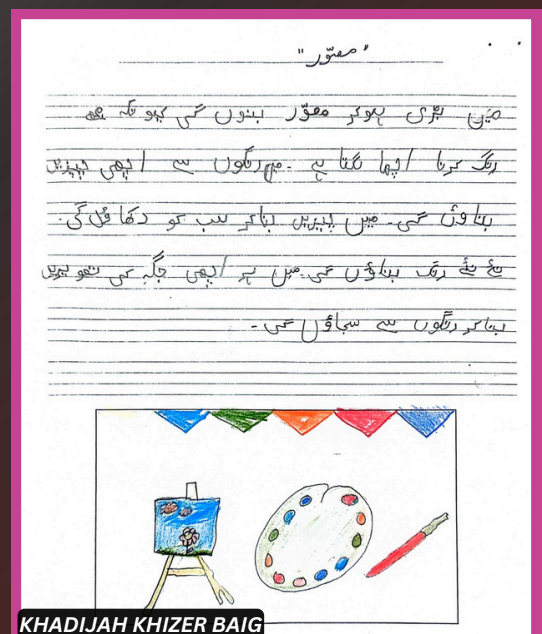 "مصوّر"
میں بڑی ہوکر مصوّر بنوں گی کیو نکہ مجھے
رنگ کرنا اچھا لگتا ہے ۔ میں رنگوں سے اچھی چیزیں
بناؤں گی۔ میں چیزیں بناکر سب کو دکھا ؤں گی۔
نئے نئے رنگ بناؤں گی۔ میں ہر اچھی جگہ کی تصویریں
بناکر رنگوں سے سجاؤں گی ۔
KHADIJAH KHIZER BAIG